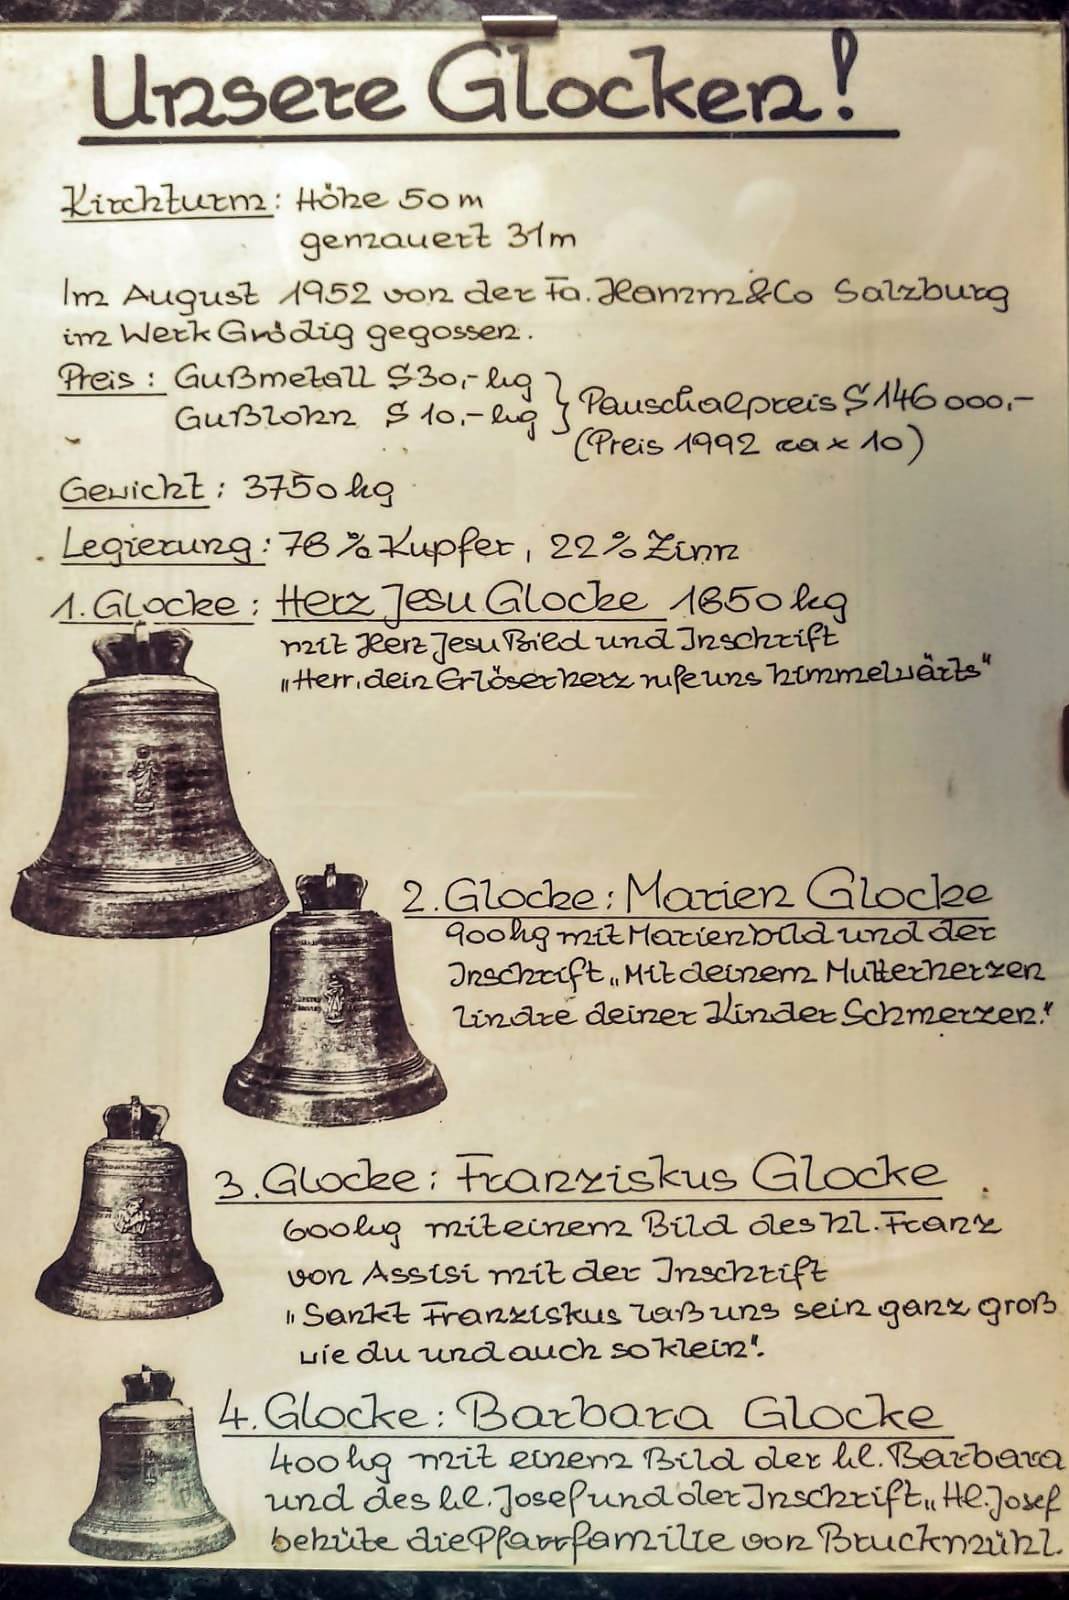 Unsere Glocken!
Kirchturm: Höhe 50 m
gemauert 31m
Im August 1952 von der Fa. Hamm & Co Salzburg
im Werk Grödig gegossen.
Preis: Gußmetall S 30,- kg
Gußlohn S 10,- kg } Pauschalpreis S 146 000,-
(Preis 1992 ca x 10)
Gewicht: 3750 kg
Legierung: 78 % Kupfer, 22 % Zinn
1. Glocke: Herz Jesu Glocke 1850 kg
mit Herz Jesu Bild und Inschrift
„Herr, dein Erlöserherz rufe uns himmelwärts"
2. Glocke: Marien Glocke
900 kg mit Marienbild und der
Inschrift „Mit deinem Mutterherzen
lindre deiner Kinder Schmerzen."
3. Glocke: Franziskus Glocke
600 kg mit einem Bild des hl. Franz
von Assisi mit der Inschrift
„Sankt Franziskus laß uns sein ganz groß
wie du und auch so klein".
4. Glocke: Barbara Glocke
400 kg mit einem Bild der hl. Barbara
und des hl. Josef und der Inschrift „Hl. Josef
behüte die Pfarrfamilie von Bruckmühl.